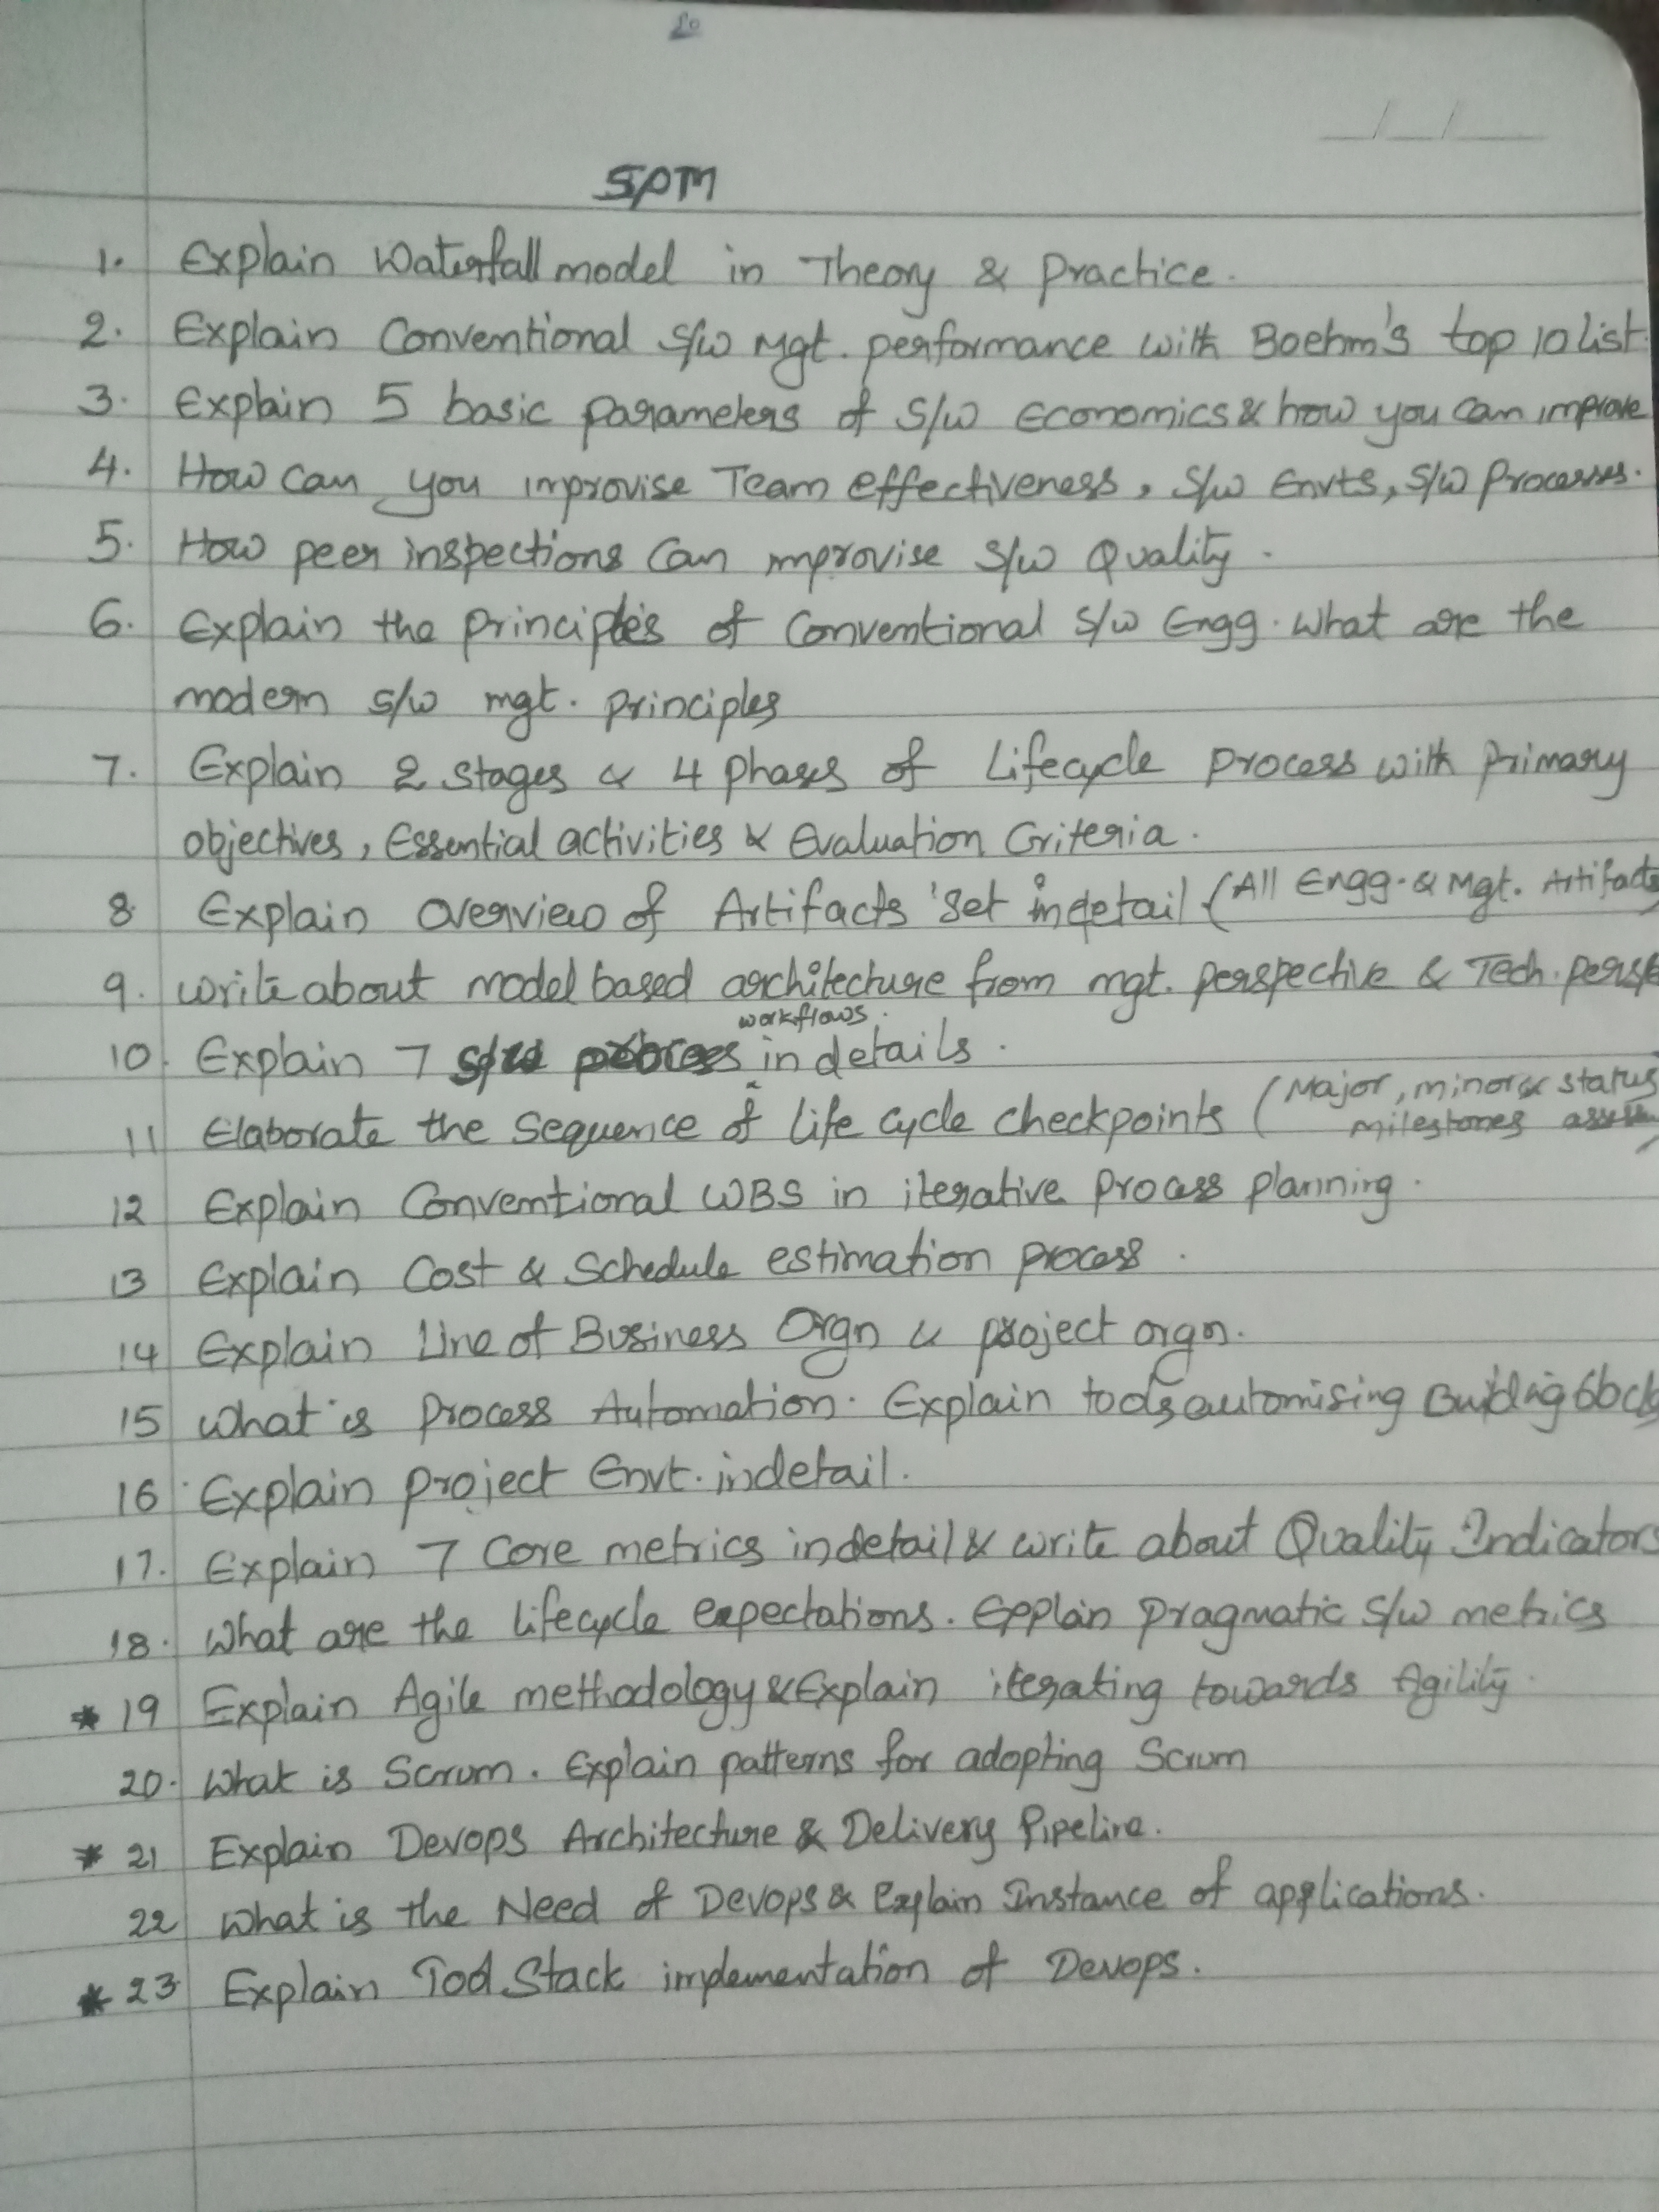 SPM
1. Explain Waterfall model in Theory & Practice.
2. Explain Conventional S/W Mgt. performance with Boehm's top 10 list.
3. Explain 5 basic parameters of S/W Economics & how you can improve
4. How can you improvise Team effectiveness, S/W Envts, S/W Processes.
5. How peer inspections can improvise S/W Quality.
6. Explain the principles of Conventional S/W Engg. What are the
modern S/W mgt. principles
7. Explain 2 stages & 4 phases of Lifecycle Process with Primary
objectives, Essential activities & Evaluation Criteria.
8 Explain overview of Artifacts Set indetail (All Engg. & Mgt. Artifacts
9. write about model based architecture from mgt. perspective & Tech. persp
workflows.
10. Explain 7 in details.
11 Elaborate the Sequence of life cycle checkpoints (Major, minor & status
milestones
12 Explain Conventional WBS in iterative process planning.
13 Explain Cost & Schedule estimation process.
14 Explain Line of Business Orgn & project orgn.
15 What is Process Automation. Explain tools automising Building block
16 Explain project Envt. indetail.
17. Explain 7 Core metrics indetail & write about Quality Indicators
18. What are the lifecycle expectations. Explain Pragmatic S/W metrics
* 19 Explain Agile methodology & Explain iterating towards Agility.
20. What is Scrum. Explain patterns for adopting Scrum
* 21 Explain Devops Architecture & Delivery Pipeline.
22 What is the Need of Devops & Explain Instance of applications.
* 23 Explain Tool Stack implementation of Devops.